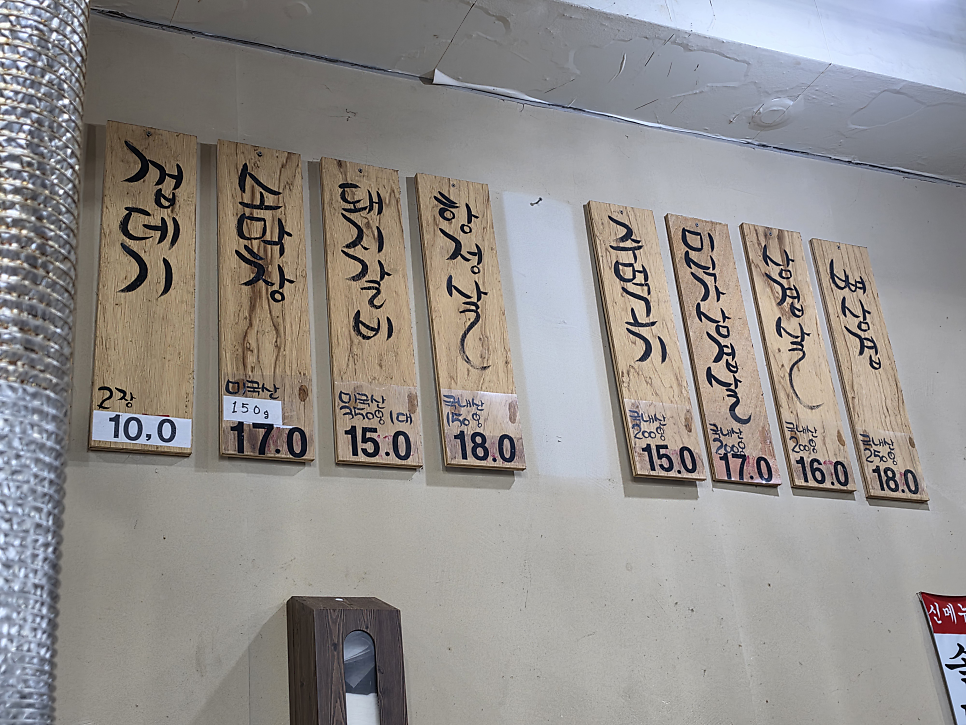 껍데기
2장
10,0
소막창
미국산
150g
17.0
돼지갈비
미국산
250g 1대
15.0
항정살
국내산
150g
18.0
국내산
200g
15.0
삼겹살
국내산
200g
17.0
삼겹살
국내산
200g
16.0
뼈삼겹
국내산
250g
18.0
신메뉴